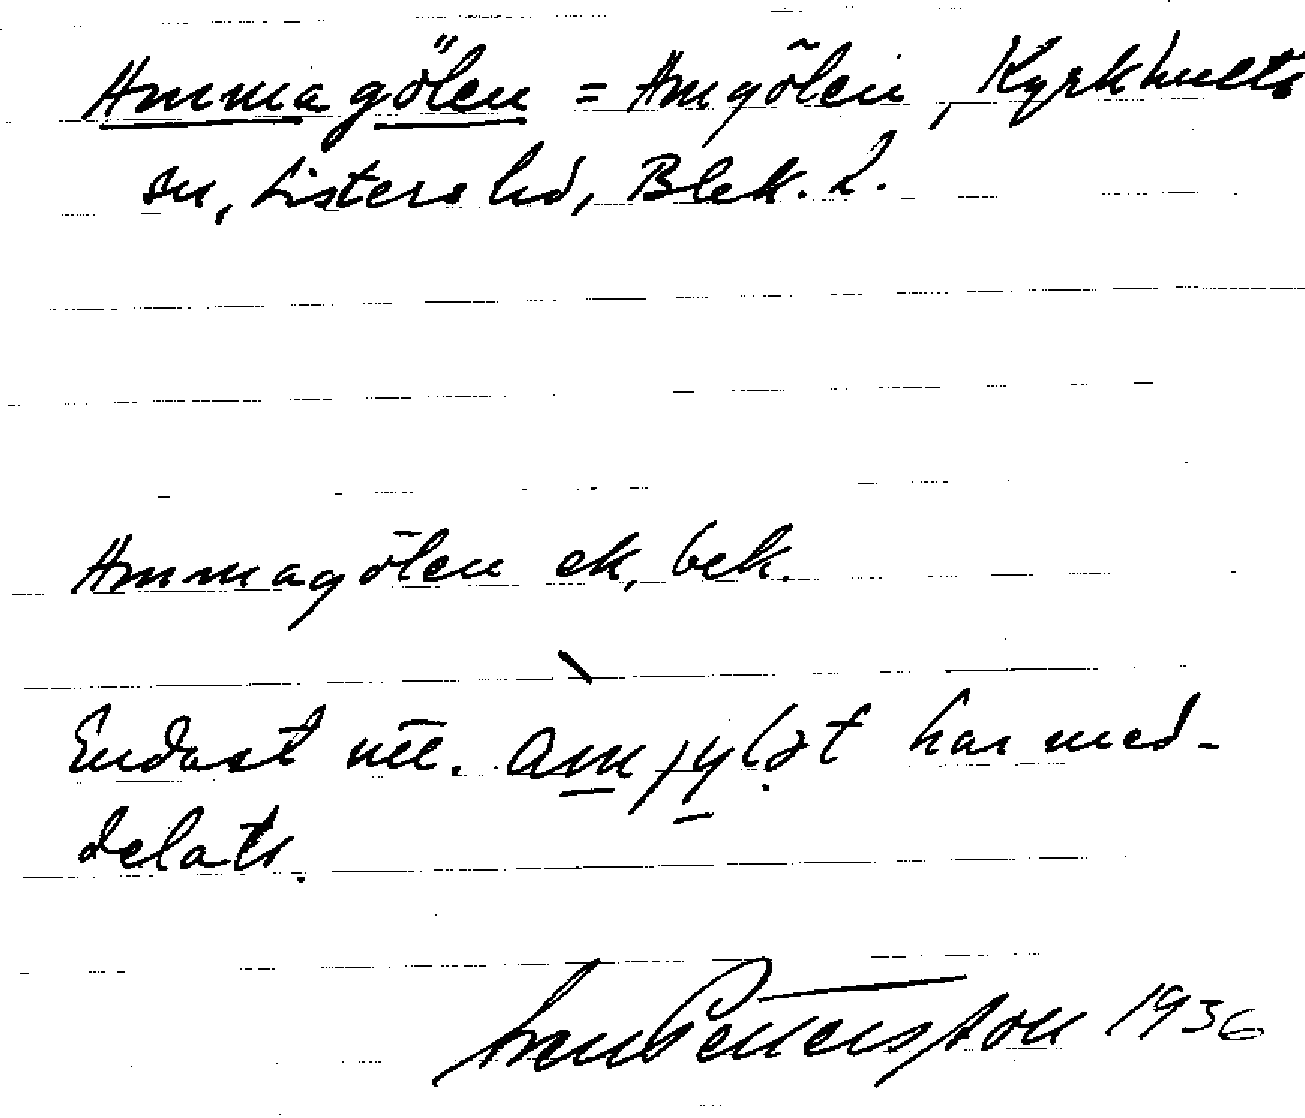 Ammagölen = Amgölen, Kyrkhults
sn, Listers hd, Blek. l.
Ammagölen ek. bek.
Endast utt. har med-
delats.
Sven Pettersson 1936